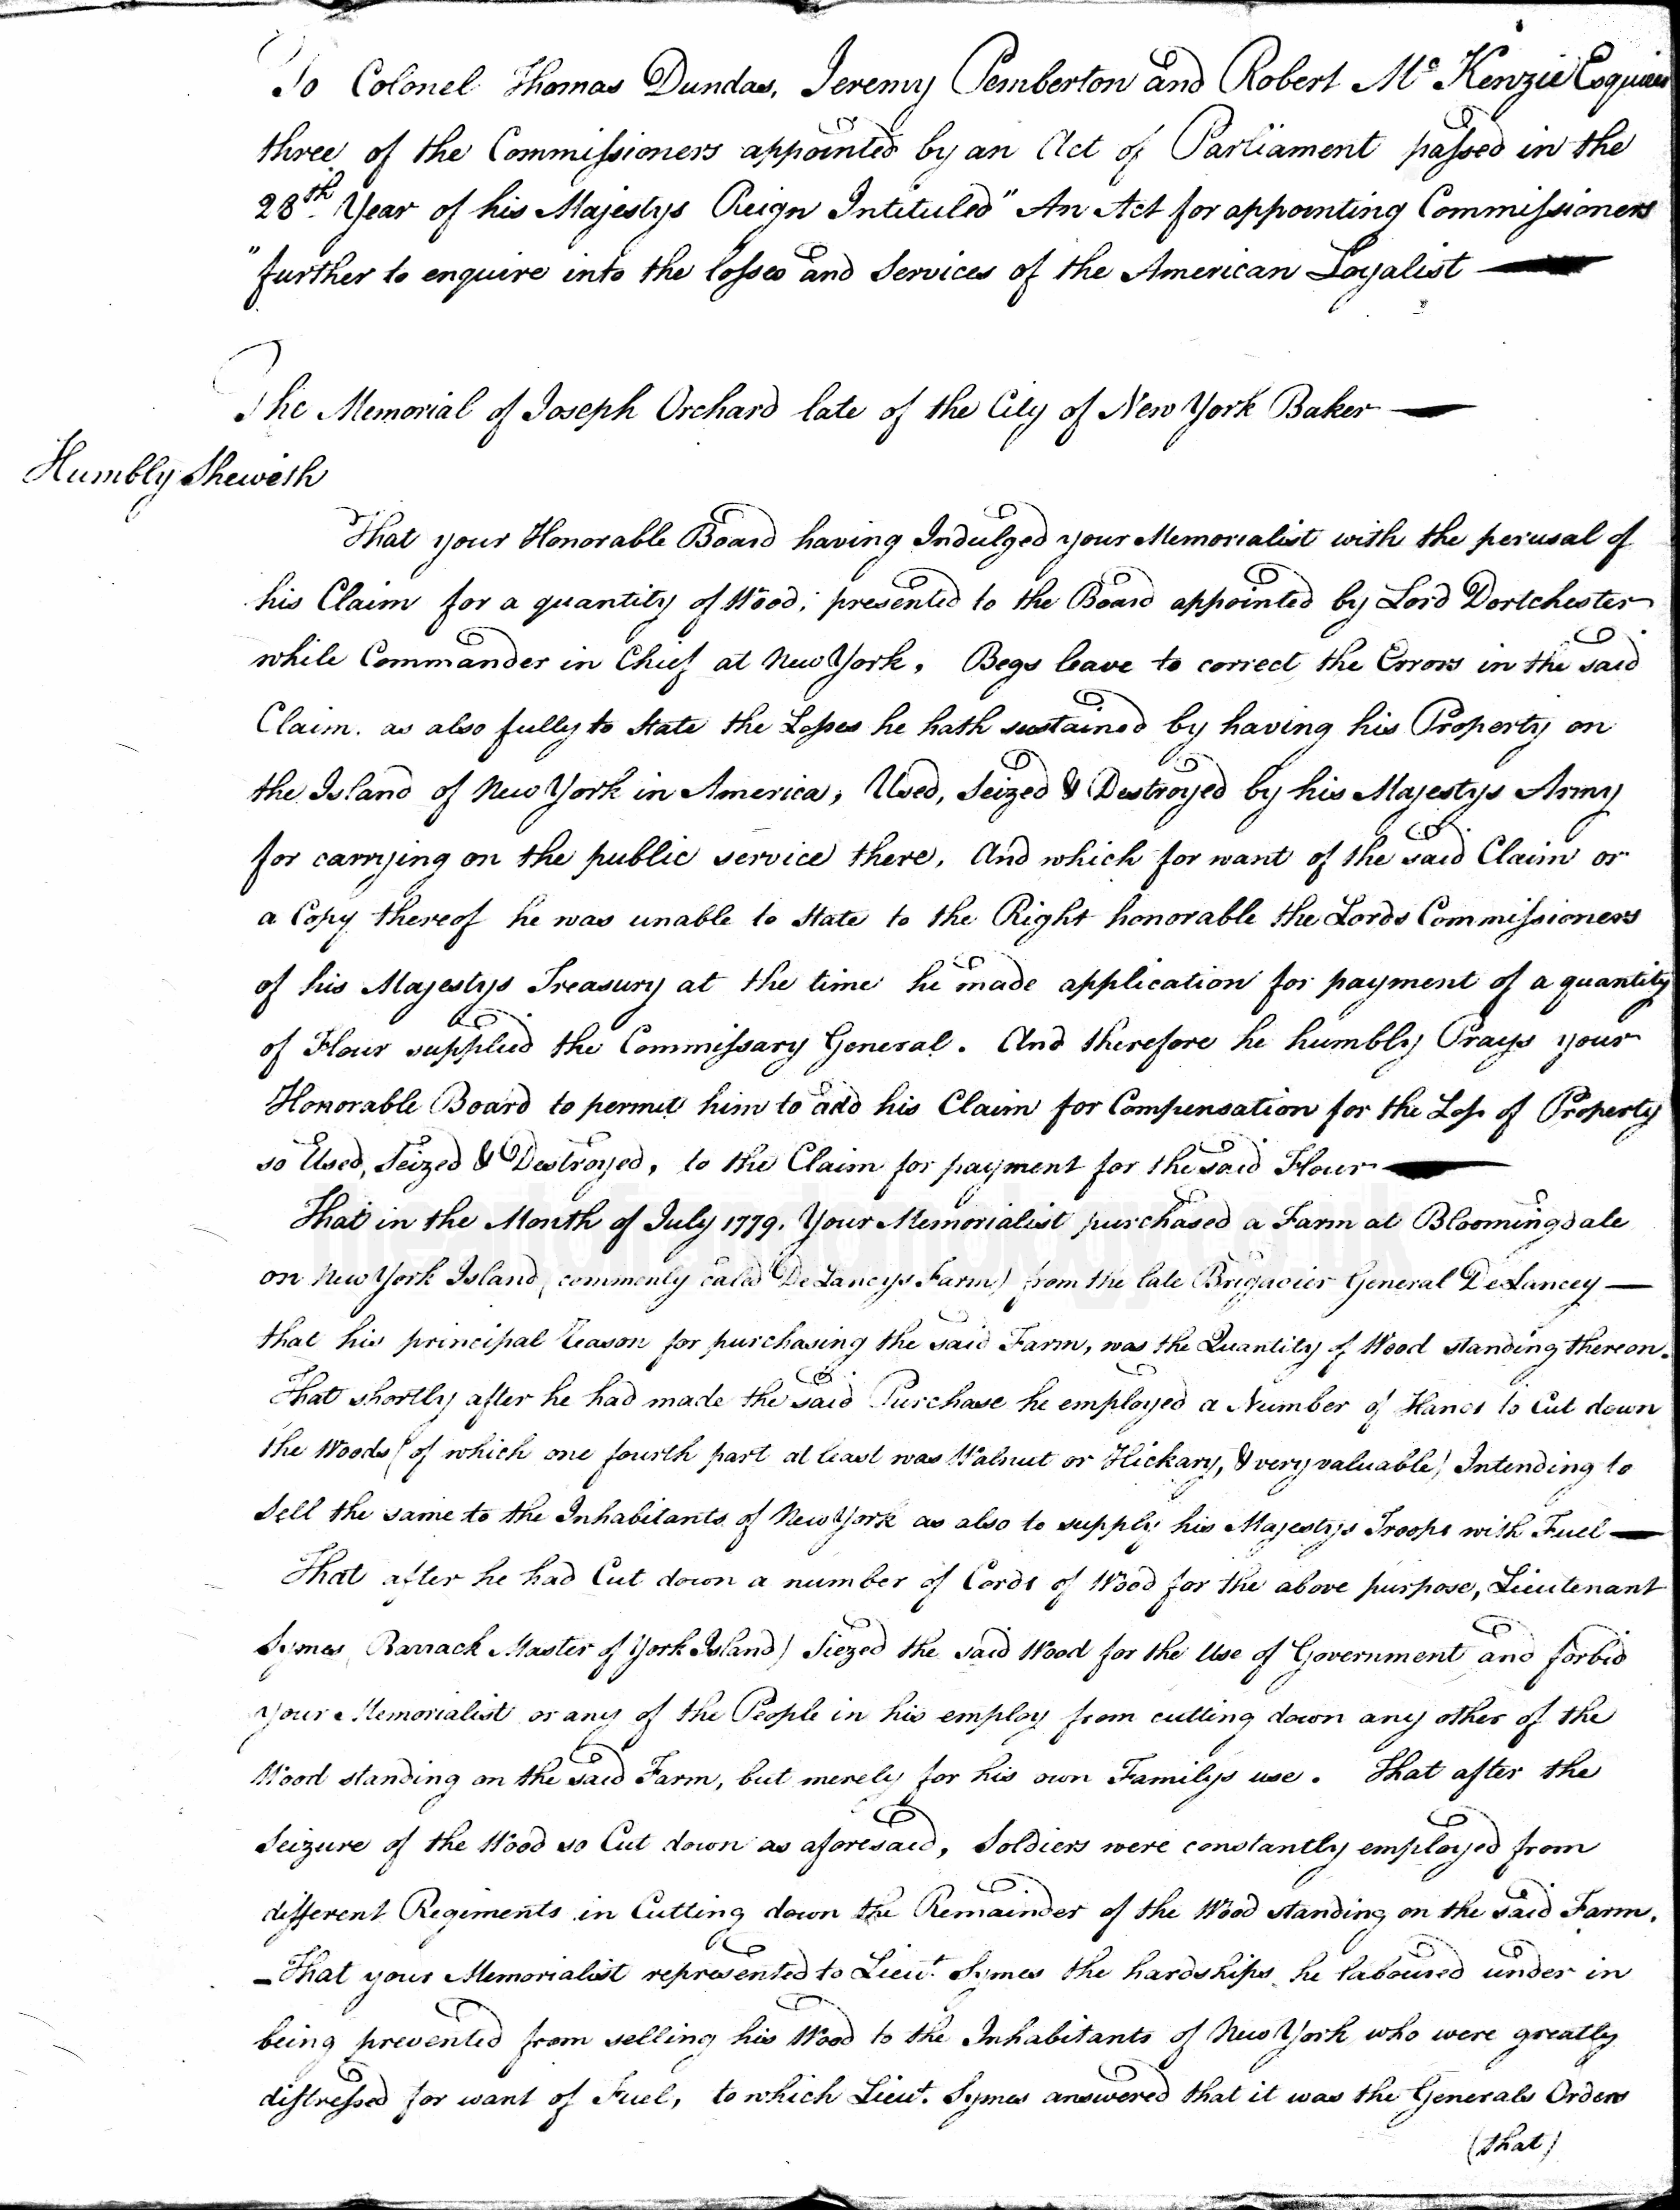 To Colonel Thomas Dundas, Jeremy Pemberton and Robert Mc Kenzie Esquires
three of the Commissioners appointed by an Act of Parliament passed in the
28th Year of his Majestys Reign Intituled "An Act for appointing Commissioners
"further to enquire into the losses and Services of the American Loyalist —
The Memorial of Joseph Orchard late of the City of New York Baker —
Humbly Sheweth
That your Honorable Board having Indulged your Memorialist with the perusal of
his Claim for a quantity of Wood; presented to the Board appointed by Lord Dortchester
while Commander in Chief at New York, Begs leave to correct the Errors in the said
Claim. as also fully to State the Losses he hath sustained by having his Property on
the Island of New York in America, Used, Seized & Destroyed by his Majestys Army
for carrying on the public service there, And which for want of the said Claim or
a Copy thereof he was unable to State to the Right honorable the Lords Commissioners
of his Majestys Treasury at the time he made application for payment of a quantity
of Flour supplied the Commissary General. And therefore he humbly Prays your
Honorable Board to permit him to add his Claim for Compensation for the Loss of Property
so Used, Seized & Destroyed, to the Claim for payment for the said Flour —
That in the Month of July 1779. Your Memorialist purchased a Farm at Bloomingdale
on New York Island (commonly caled DeLanceys Farm) from the late Brigadier General DeLancey —
that his principal Reason for purchasing the said Farm, was the Quantity of Wood standing thereon.
That shortly after he had made the said Purchase he employed a Number of Hands to Cut down
the Woods (of which one fourth part at least was Walnut or Hickary, & very valuable) Intending to
Sell the same to the Inhabitants of New York as also to supply his Majestys Troops with Fuel —
That after he had Cut down a number of Cords of Wood for the above purpose, Lieutenant
Symes (Barrack Master of York Island) Siezed the said Wood for the Use of Government and forbid
your Memorialist or any of the People in his employ from cutting down any other of the
Wood standing on the said Farm, but merely for his own Familys use. That after the
Seizure of the Wood so Cut down as aforesaid, Soldiers were constantly employed from
different Regiments in Cutting down the Remainder of the Wood standing on the said Farm.
— That your Memorialist represented to Lieut. Symes the hardships he laboured under in
being prevented from selling his Wood to the Inhabitants of New York who were greatly
distressed for want of Fuel, to which Lieut. Symes answered that it was the Generals Orders
(that)